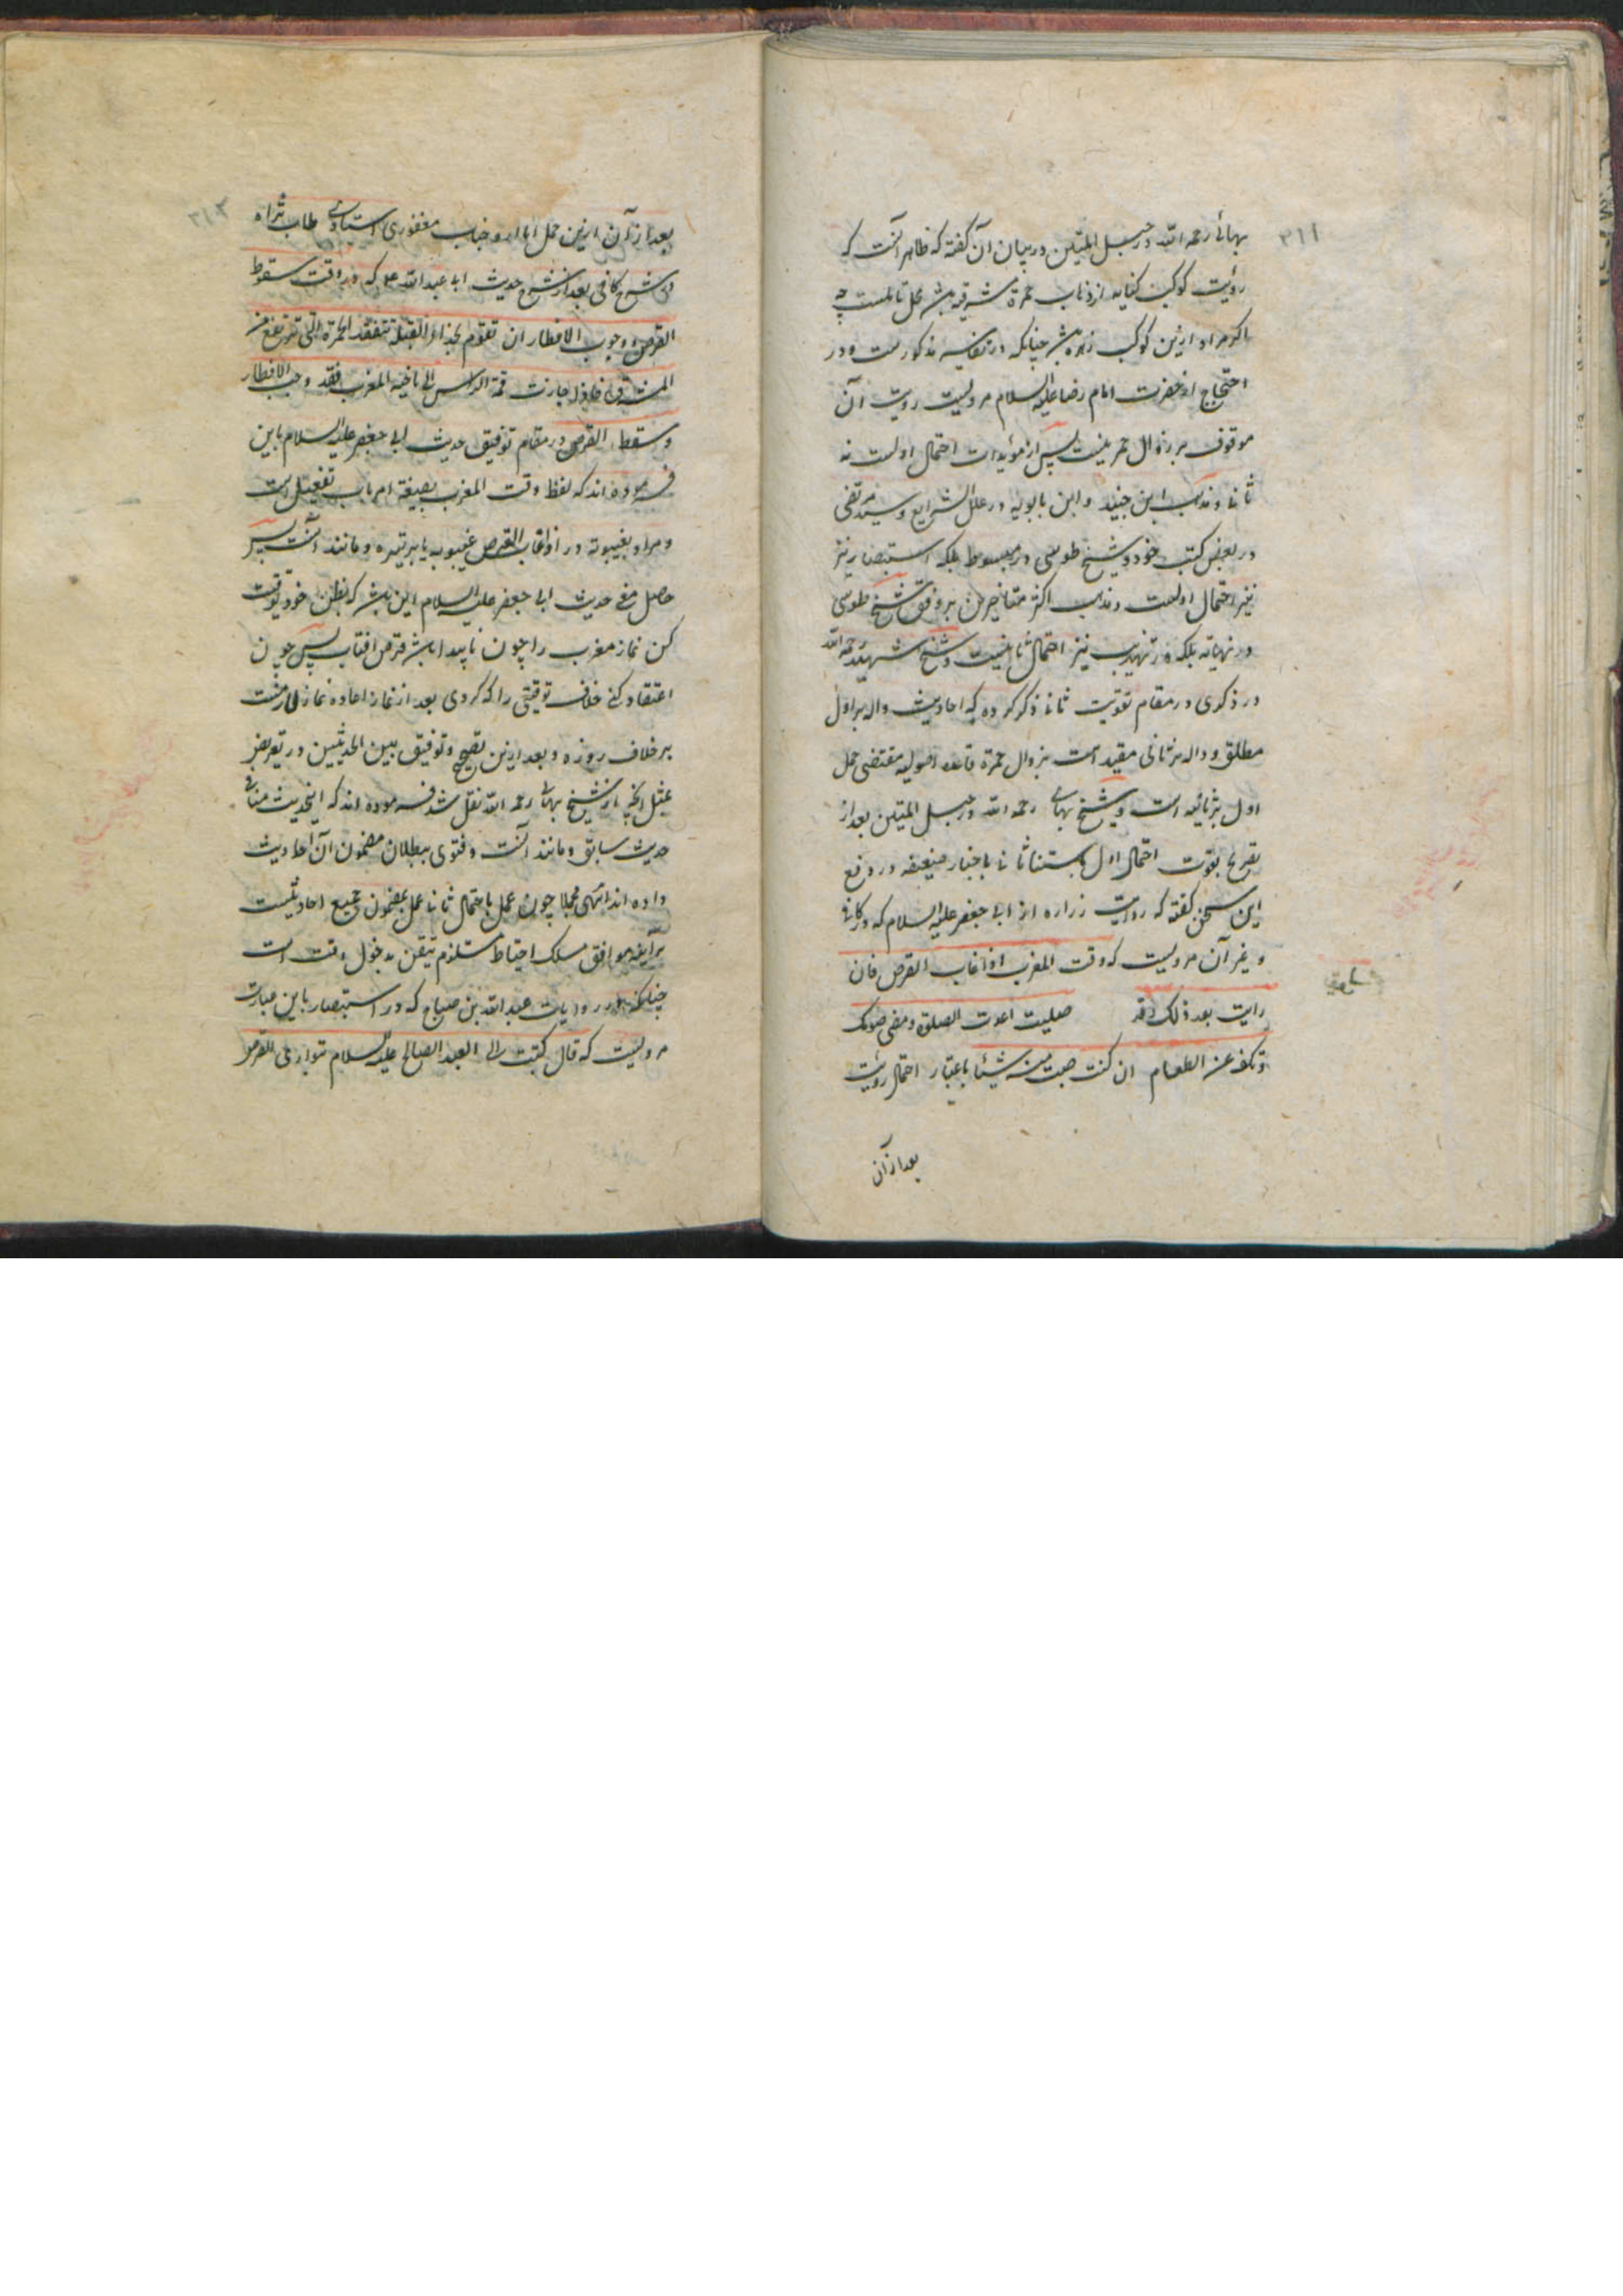 ۳۱۱
بهائی رحمه الله در حبل المتین در بیان آن گفته که ظاهر آنست که
رؤیت کوکب کنایه از ذهاب حمرة مشرقیه باشد محل تاملست چه
اگر مراد ازین کوکب زهره باشد چنانکه در نفایس مذکورست و در
احتجاج از حضرت امام رضا علیه السلام مرویست رویت آن
موقوف بر زوال حمره نیست پس از مؤیدات احتمال اولست نه
ثانی و مذهب ابن جنید و ابن بابویه در علل الشرایع و سید مرتضی
در بعض کتب خود و شیخ طوسی در مبسوط بلکه استبصار نیز
نیز احتمال اولست و مذهب اکثر متاخرین بر وفق شیخ طوسی
در نهایه بلکه در تهذیب نیز احتمال ثانیست و شیخ شهید رحمه الله
در ذکری در مقام تقویت ثانی ذکر کرده که احادیث داله بر اول
مطلق و داله بر ثانی مقید است بزوال حمرة قاعده اصولیه مقتضی حمل
اول بر ثانیه است و شیخ بهائی رحمه الله در حبل المتین بعد از
تصریح بقوت احتمال اول باستثنا ثانی باخبار ضعیفه در دفع
این سخن گفته که روایت زراره از ابی جعفر علیه السلام که در کافی
و غیر آن مرویست که وقت المغرب اذا غاب القرص فان
رایت بعد ذلک وقد صلیت اعدت الصلوة و مضی صومک
و تکف عن الطعام ان کنت اصبت منه شیئا باعتبار احتمال رؤیت
بعد از آن
۳۱۲
بعد از آن ازین حمل ابا دارد و جناب مغفوری استادی طاب ثراه
در شرح کافی بعد از شرح حدیث ابا عبد الله ع که در وقت سقوط
القرص و وجوب الافطار ان تقوم بحذاء القبلة تتفقد الحمرة التی ترتفع من
المشرق فاذا جازت قمة الراس الی ناحیة المغرب فقد وجب الافطار
و سقط القرص در مقام توفیق حدیث ابی جعفر علیه السلام باین
فرموده اند که لفظ وقت المغرب بصیغه امر باب تفعیل است
و مراد بغیبوبة در اذا غاب القرص غیبوبه یا بر تیره و مانند آنست پس
حاصل معنی حدیث ابی جعفر علیه السلام این باشد که بظن خود توقیت
کن نماز مغرب را چون ناپیدا باشد قرص افتاب پس چون
اعتقاد کنی خلاف توقیتی را که کردی بعد از نماز اعاده نماز لازمست
بر خلاف روزه و بعد ازین تصحیح و توفیق بین الحدیثین در تعریض
بمثل آنچه از شیخ بهائی رحمه الله نقل شد فرموده اند که اینحدیث منافی
حدیث سابق و مانند آنست و فتوی ببطلان مضمون آن احادیث
داده اند انتهی مجملا چون عمل باحتمال ثانی عمل بمضمون جمیع احادیثست
هر آینه موافق مسلک احتیاط مستلزم تیقن بدخول وقت است
چنانکه در روایات عبد الله بن صباح که در استبصار باین عبارت
مرویست که قال کتبت الی العبد الصالح علیه السلام یتواری القرص